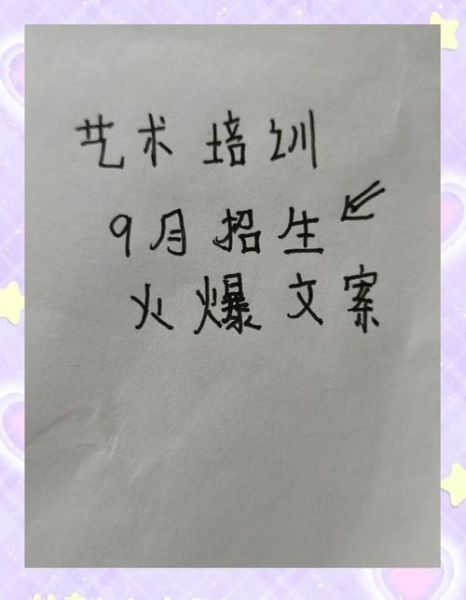 艺术培训
9月招生
火爆文案